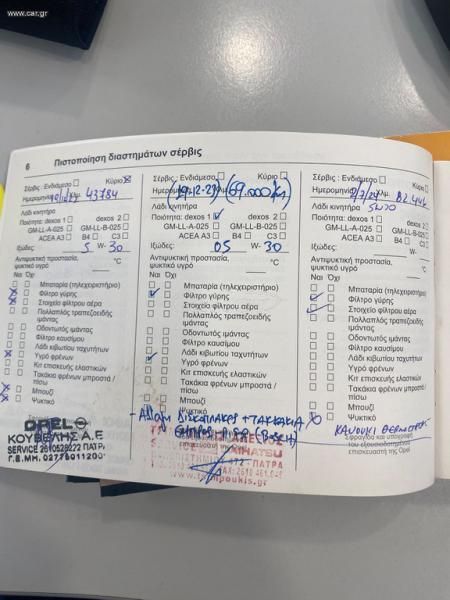 www.car.gr
6 Πιστοποίηση διαστημάτων σέρβις
Σέρβις : Ενδιάμεσο Κύριο
Ημερομηνία Χλμ. 43784
Λάδι κινητήρα
Ποιότητα: dexos 1 dexos 2
GM-LL-A-025 GM-LL-B-025
ACEA A3 B4 C3
Ιξώδες: 5 W- 30
Αντιψυκτική προστασία,
ψυκτικό υγρό °C
Ναι Όχι
Μπαταρία (τηλεχειριστήριο)
Φίλτρο γύρης
Στοιχείο φίλτρου αέρα
Πολλαπλός τραπεζοειδής
ιμάντας
Οδοντωτός ιμάντας
Φίλτρο καυσίμου
Λάδι κιβωτίου ταχυτήτων
Υγρό φρένων
Κιτ επισκευής ελαστικών
Τακάκια φρένων μπροστά /
πίσω
Μπουζί
Ψυκτικό
OPEL
ΚΟΥΒΕΛΗΣ Α.Ε
SERVICE 2610528222 ΠΑΤΡ
Γ.Ε.ΜΗ. 02776011200
Σέρβις: Ενδιάμεσο Κύριο
Ημερομηνία 19-12-23 (69.000 km)
Λάδι κινητήρα
Ποιότητα: dexos 1 dexos 2
GM-LL-A-025 GM-LL-B-025
ACEA A3 B4 C3
Ιξώδες: 05 W- 30
Αντιψυκτική προστασία,
ψυκτικό υγρό °C
Ναι Όχι
Μπαταρία (τηλεχειριστήριο)
Φίλτρο γύρης
Στοιχείο φίλτρου αέρα
Πολλαπλός τραπεζοειδής
ιμάντας
Οδοντωτός ιμάντας
Φίλτρο καυσίμου
Λάδι κιβωτίου ταχυτήτων
Υγρό φρένων
Κιτ επισκευής ελαστικών
Τακάκια φρένων μπροστά /
πίσω
Μπουζί
Ψυκτικό
- Αλλαγή Δισκόπλακες + Τακάκια
(BOSCH)
SERVICE
ΠΑΤΡΑ
Σέρβις : Ενδιάμεσο Κύριο
Ημερομηνία Χλμ.
Λάδι κινητήρα 5W30
Ποιότητα: dexos 1 dexos 2
GM-LL-A-025 GM-LL-B-025
ACEA A3 B4 C3
Ιξώδες: W-
Αντιψυκτική προστασία,
ψυκτικό υγρό °C
Ναι Όχι
Μπαταρία (τηλεχειριστήριο)
Φίλτρο γύρης
Στοιχείο φίλτρου αέρα
Πολλαπλός τραπεζοειδής
ιμάντας
Οδοντωτός ιμάντας
Φίλτρο καυσίμου
Λάδι κιβωτίου ταχυτήτων
Υγρό φρένων
Κιτ επισκευής ελαστικών
Τακάκια φρένων μπροστά /
πίσω
Μπουζί
Ψυκτικό
Σφραγίδα και υπογραφή
του εξουσιοδοτημένου
επισκευαστή της Opel